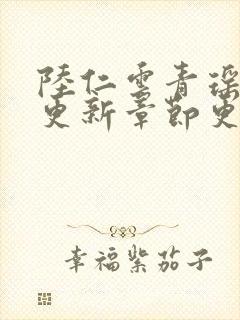 陸仁雲青瑶
更新章節更
幸福紫茄子